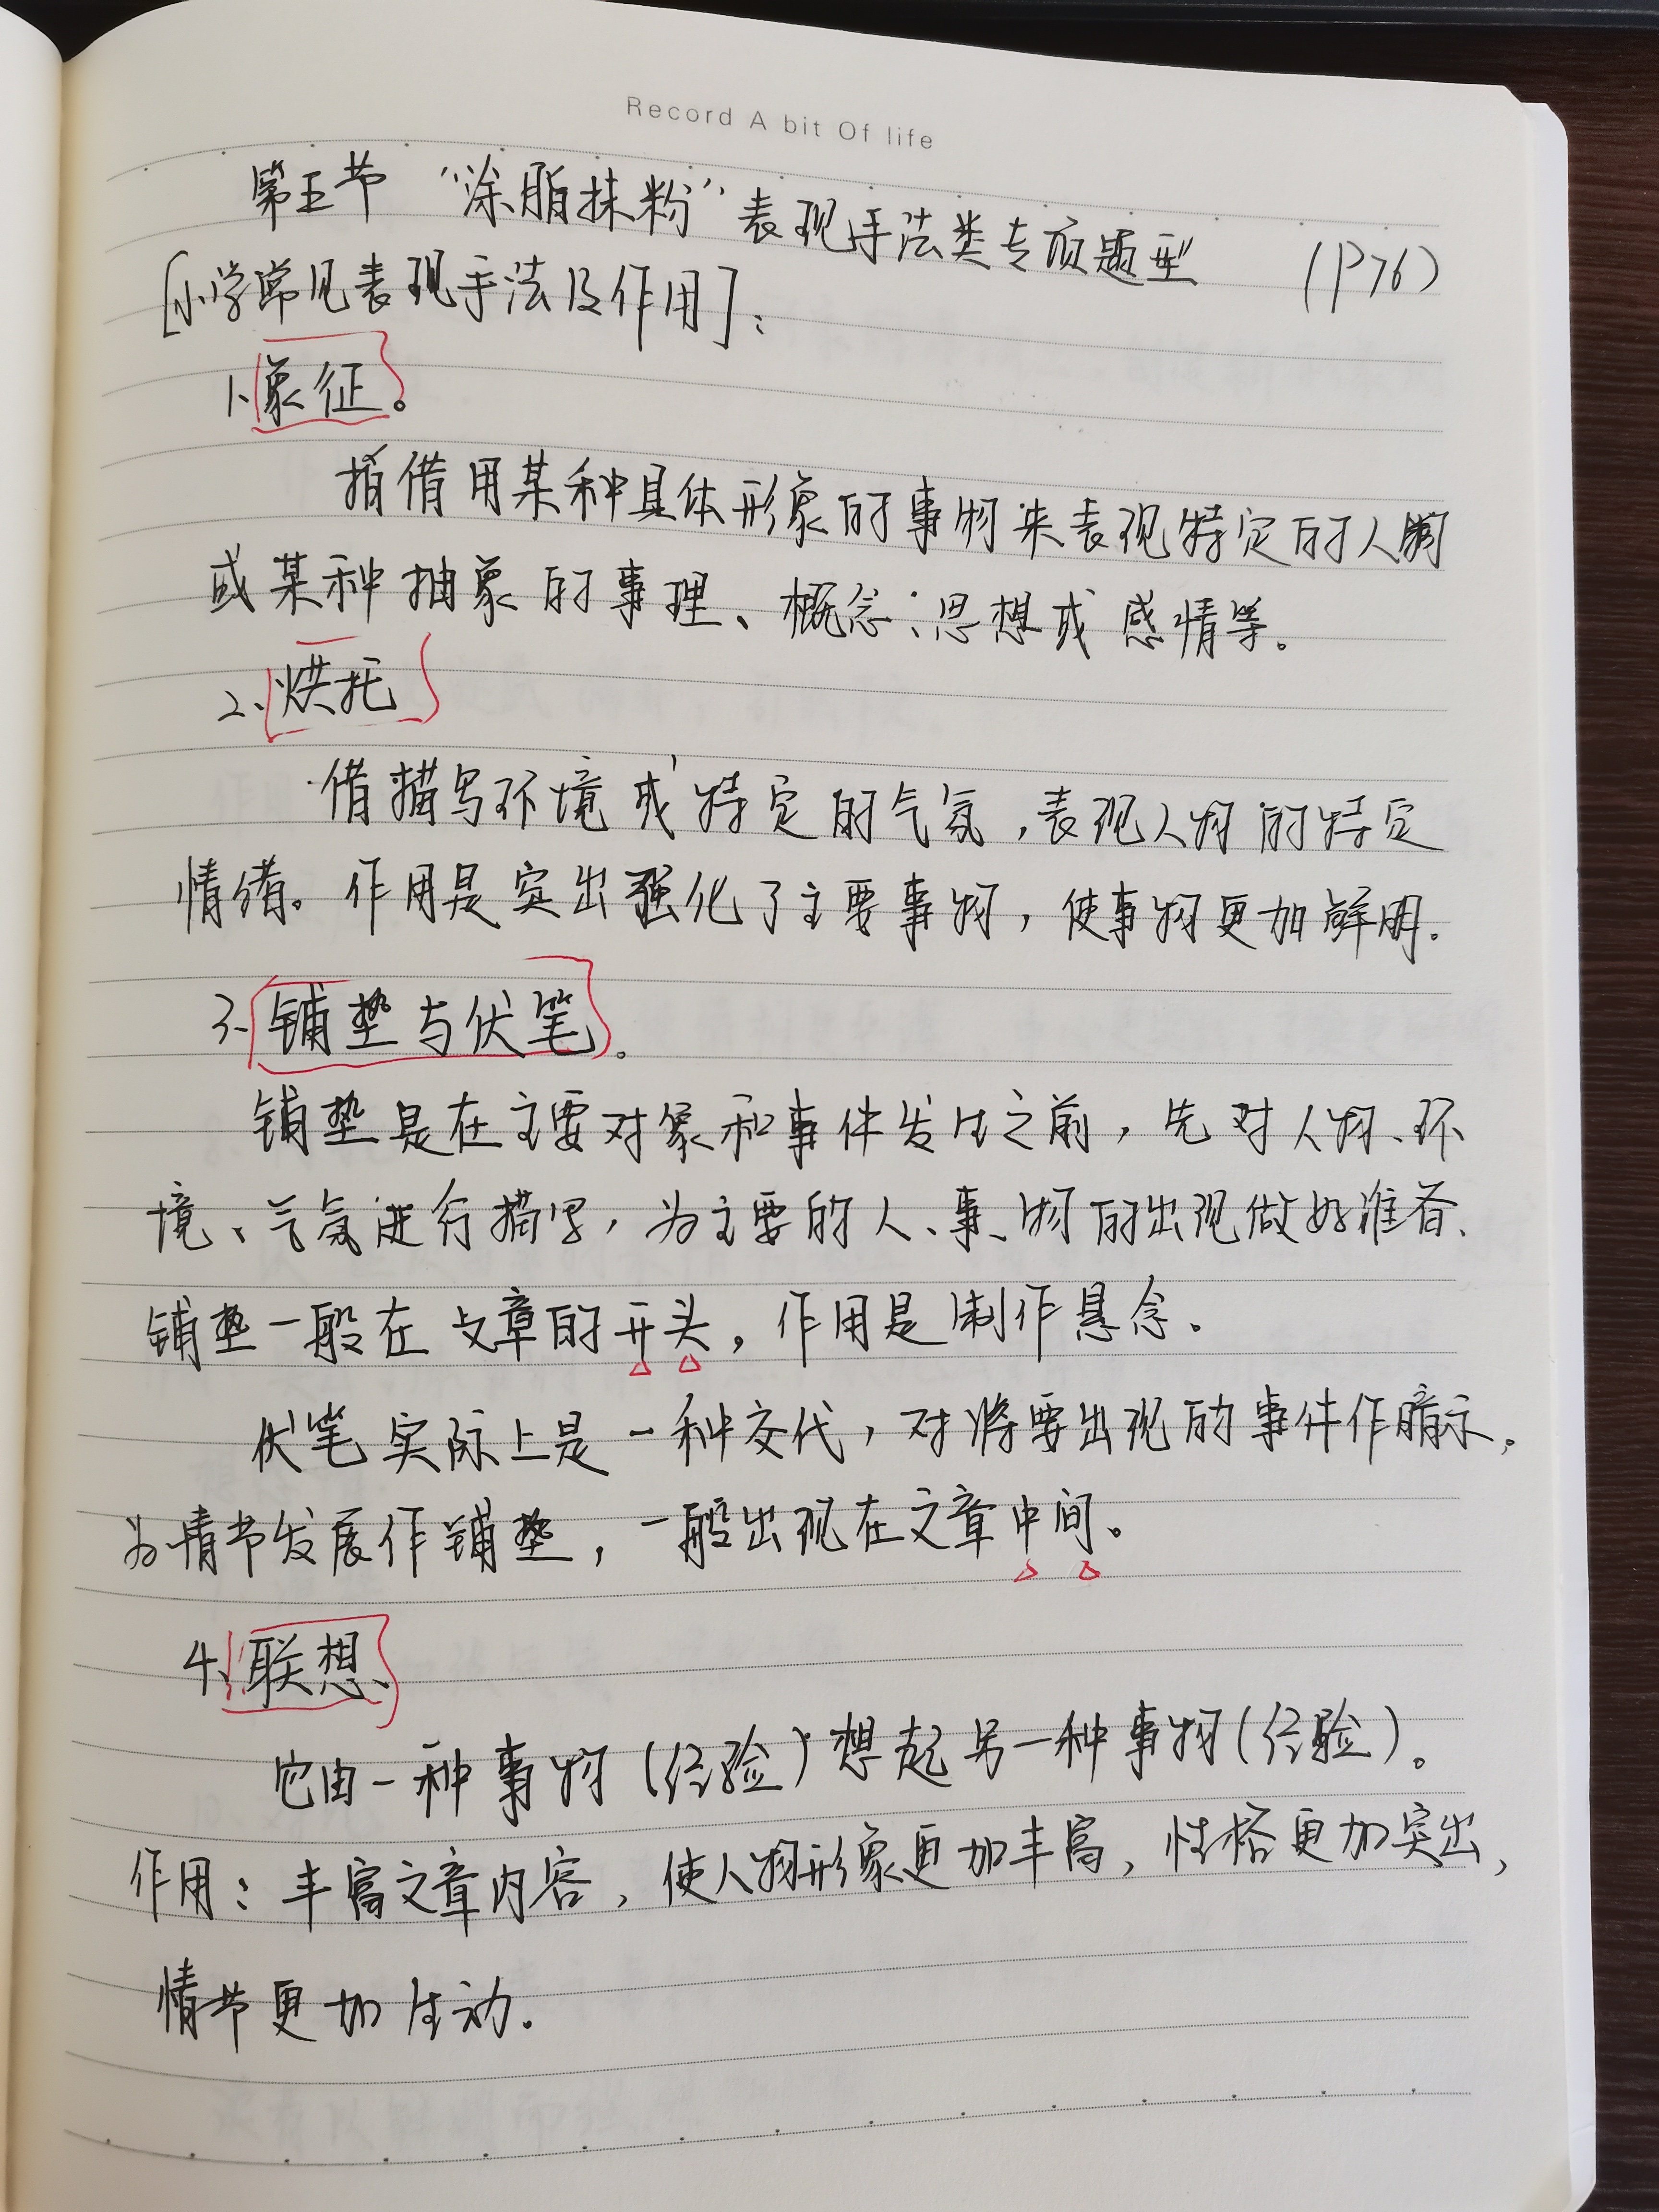 Record A bit Of life
第五节 “涂脂抹粉”表现手法类专项题型 (P76)
[小学常见表现手法及作用]:
1、象征。
指借用某种具体形象的事物来表现特定的人物
或某种抽象的事理、概念、思想或感情等。
2、烘托
借描写环境或特定的气氛,表现人物的特定
情绪。作用是突出强化了主要事物,使事物更加鲜明.
3、铺垫与伏笔。
铺垫是在主要对象和事件发生之前,先对人物、环
境、气氛进行描写,为主要的人、事、物的出现做好准备、
铺垫一般在文章的开头,作用是制作悬念.
伏笔实际上是一种交代,对将要出现的事件作暗示,
为情节发展作铺垫,一般出现在文章中间。
4、联想、
它由一种事物(经验)想起另一种事物(经验)。
作用:丰富文章内容,使人物形象更加丰富,性格更加突出,
情节更加生动.